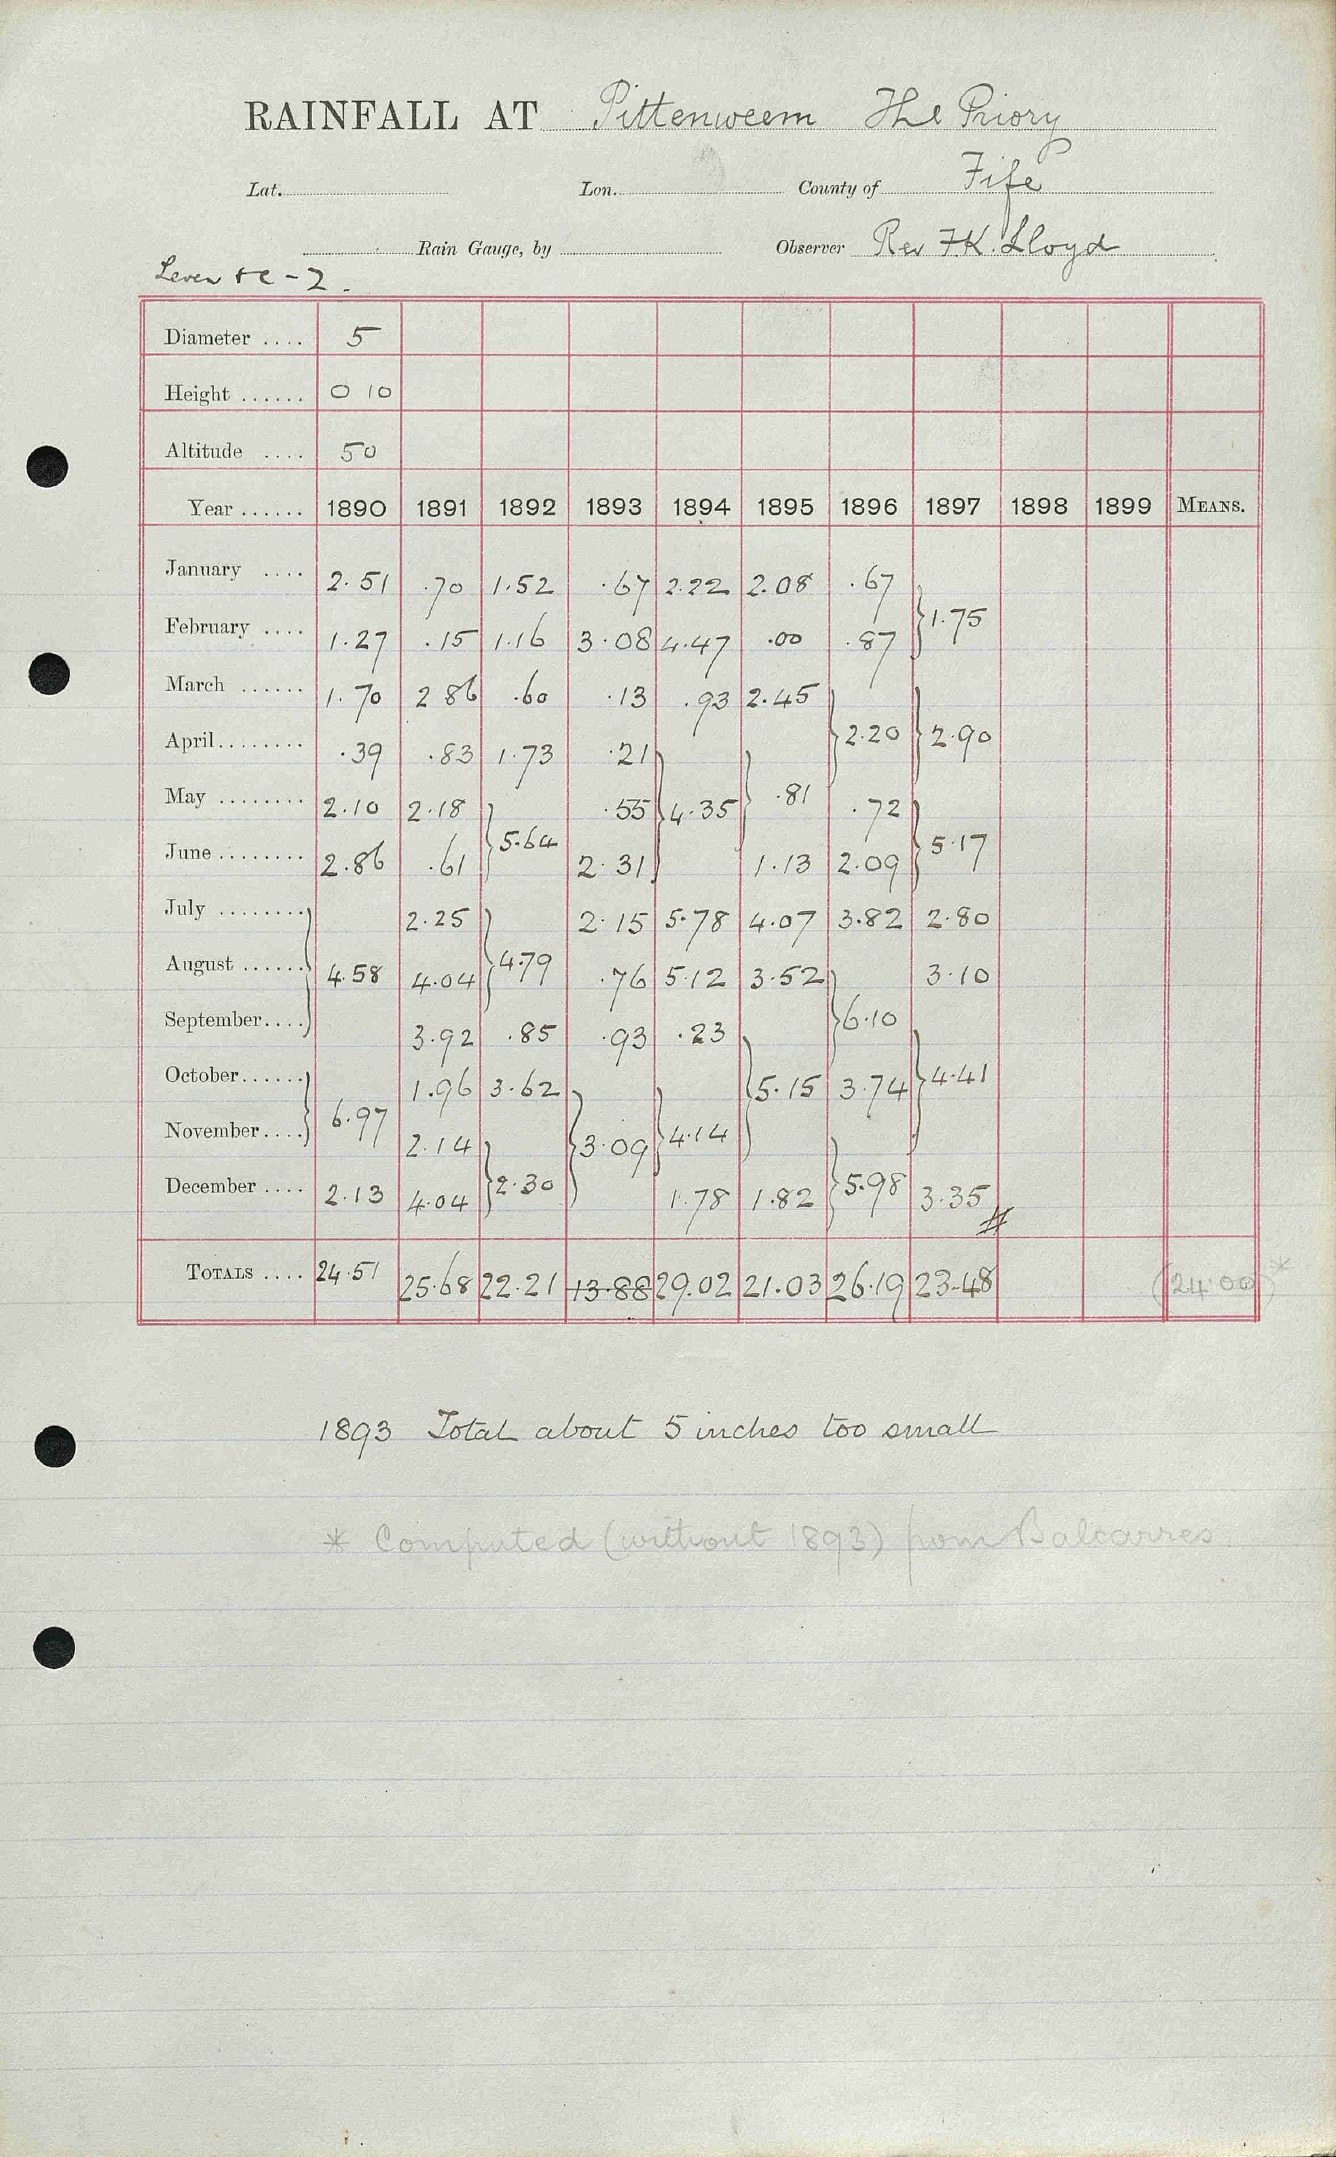 RAINFALL AT Pittenweem The Priory
Lat. Lon. County of Fife
Rain Gauge, by Observer Rev FK. Lloyd
Leven &c - 2.
Diameter .... 5
Height ...... 0 10
Altitude .... 50
Year ...... 1890 1891 1892 1893 1894 1895 1896 1897 1898 1899 MEANS.
January .... 2.51 .70 1.52 .67 2.22 2.08 .67
} 1.75
February .... 1.27 .15 1.16 3.08 4.47 .00 .87
March ...... 1.70 2 86 .60 .13 .93 2.45
} 2.20 } 2.90
April ........ .39 .83 1.73 .21
May ........ 2.10 2.18 .55 } 4.35 } .81 .72
} 5.64 } 5.17
June ........ 2.86 .61 2.31 1.13 2.09
July ........ 2.25 2.15 5.78 4.07 3.82 2.80
August ...... } 4.58 4.04 } 4.79 .76 5.12 3.52 3.10
} 6.10
September .... 3.92 .85 .93 .23
October ...... 1.96 3.62 } 5.15 3.74 } 4.41
} 6.97
November .... 2.14 } 3.09 } 4.14
} 2.30 } 5.98
December .... 2.13 4.04 1.78 1.82 3.35 #
TOTALS .... 24.51 25.68 22.21 13.88 29.02 21.03 26.19 23.48 (24.00)*
1893 Total about 5 inches too small
* Computed (without 1893) from Balcarres